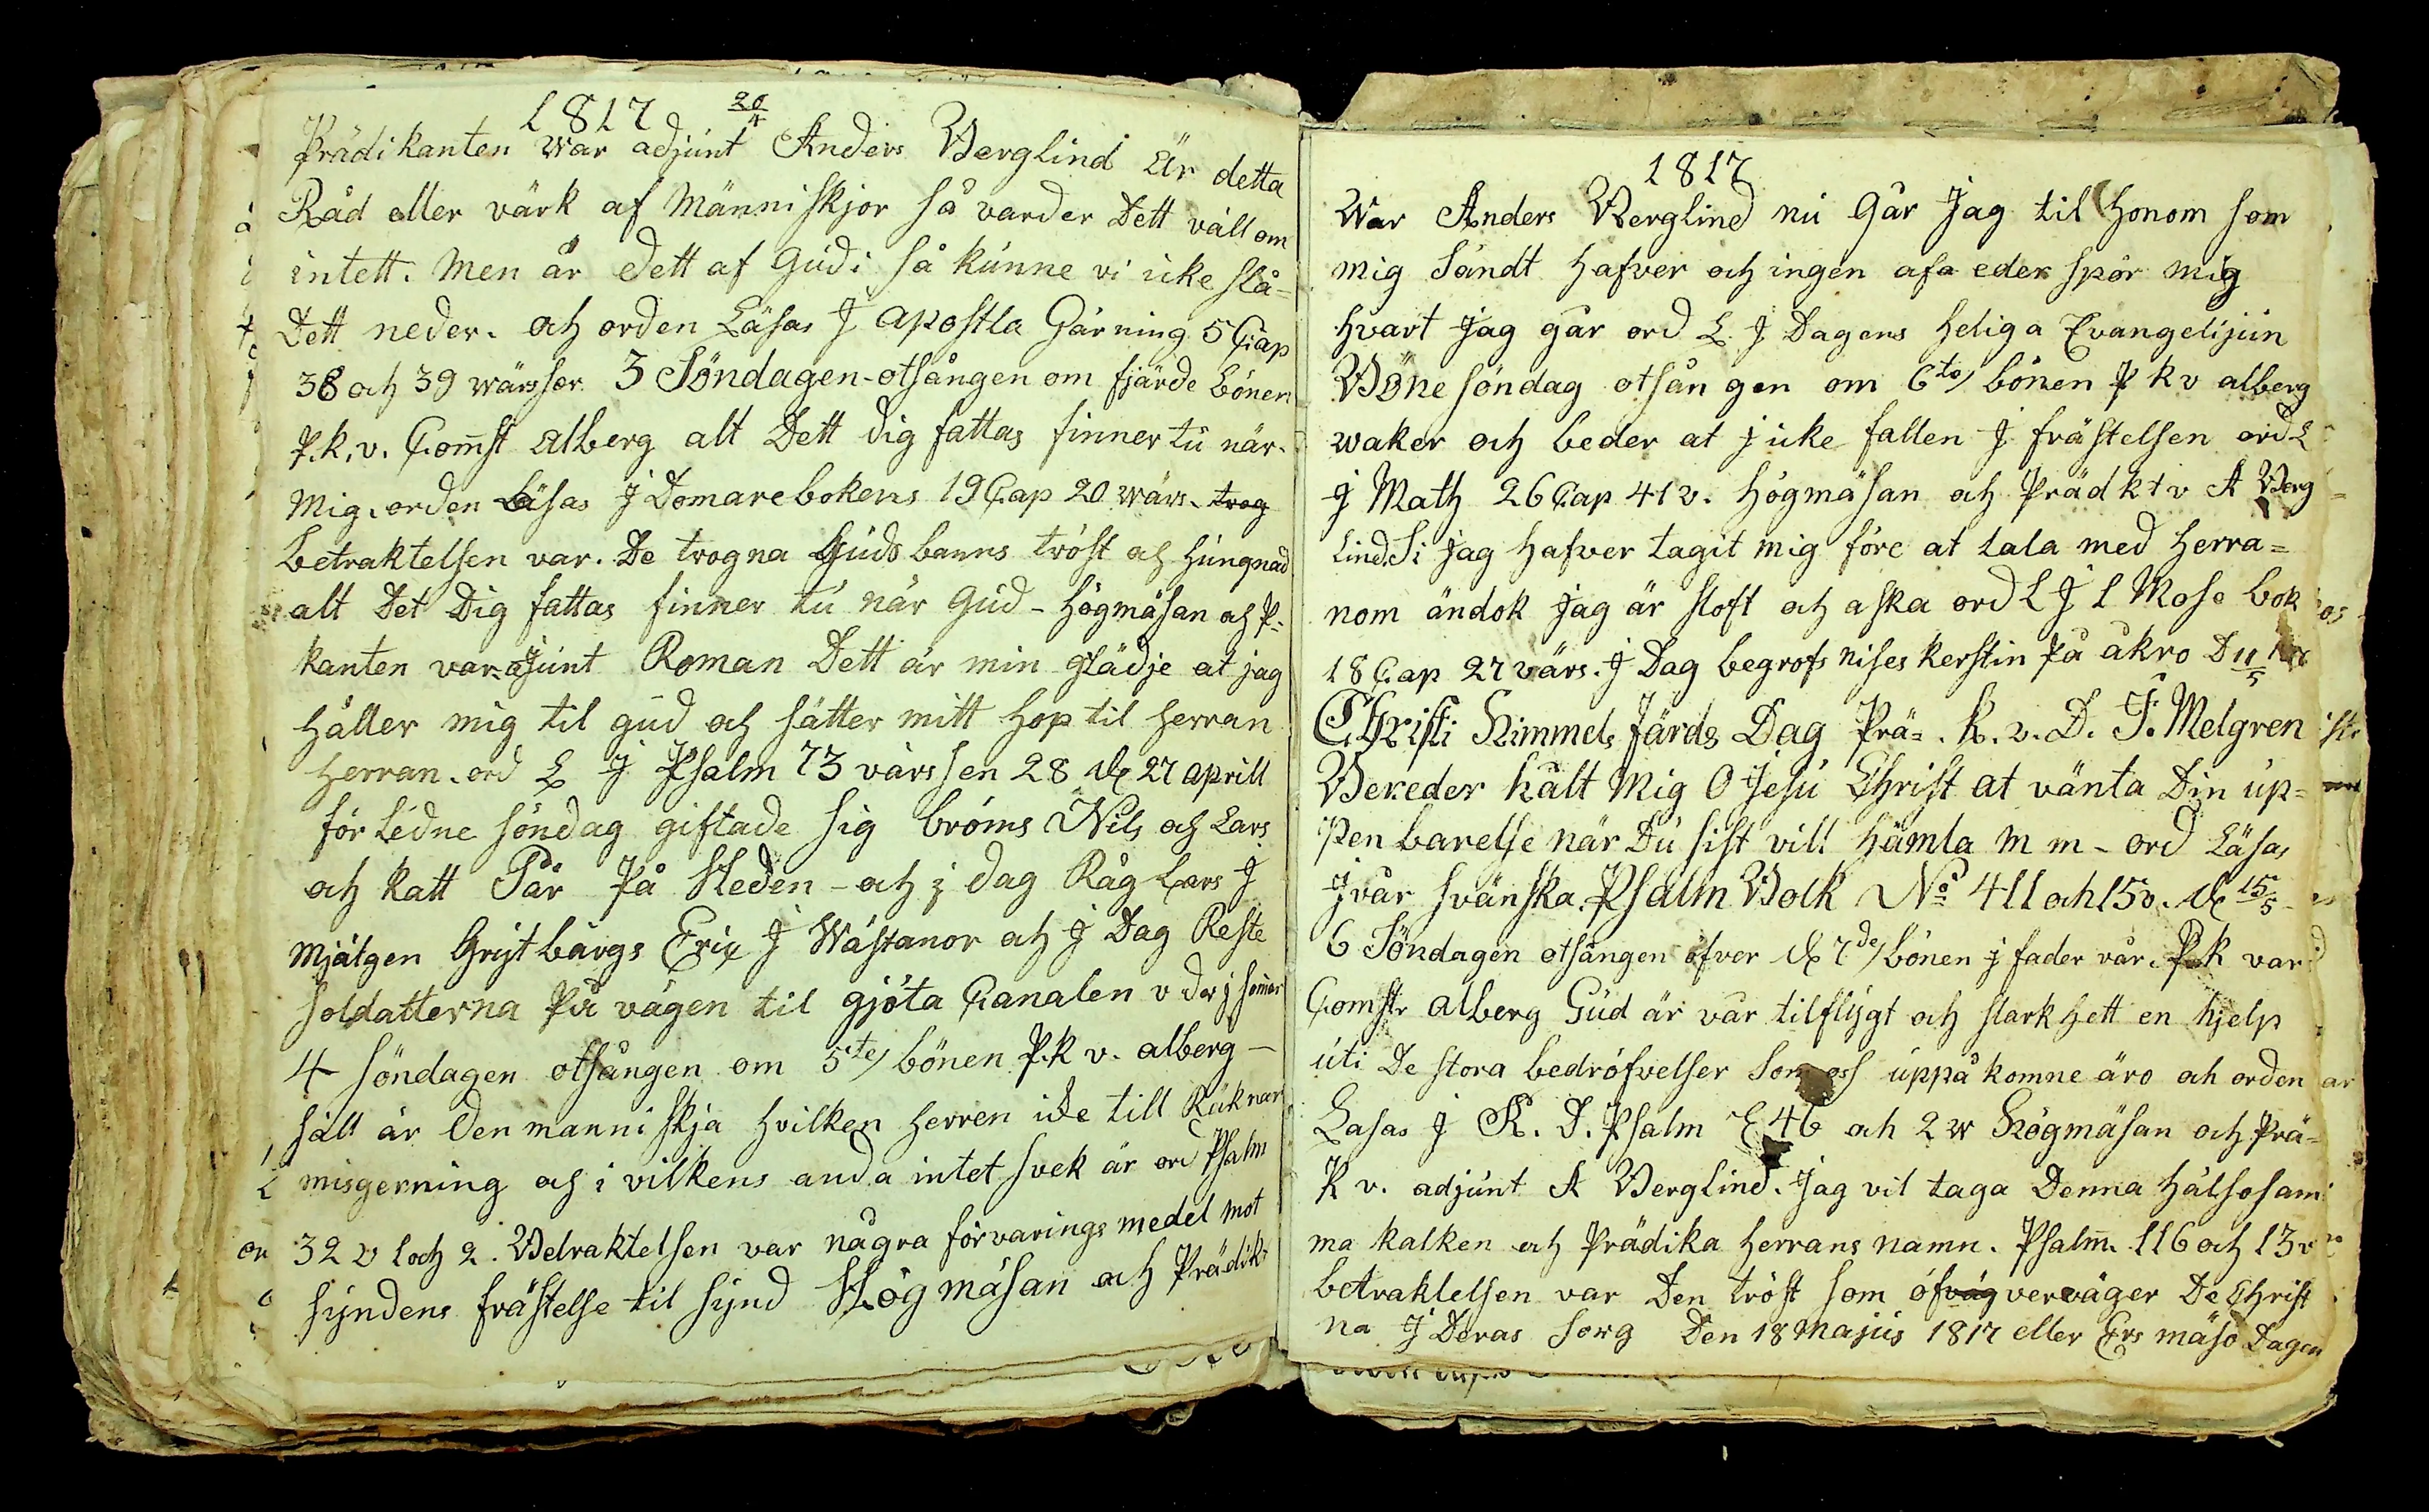 1817 20/4
Prädikanten war adjunt Anders Berglind Är detta
Råd eller värk af Människjor så varder Dett väll om
intett. Men är dett af Gudi så kunne vi icke slå=
Dett neder. och orden Läsas J apostla Gärning 5 Cap
38 och 39 wärsser. 3 Söndagen-otsången om fjärde bönen
P.k.v. Comst alberg alt Dett dig fattas finner tu när.
Mig. orden Läsas J Domarebokens 19 Cap 20 wärs. trog
betraktelsen var. De trogna Guds banns tröst och hungnad
alt Det Dig fattas finner tu när Gud - högmäsan och P=
kanten var ajunt Roman Dett är min glädje at jag
håller mig til gud och sätter mitt hop til herran
herran. ord L J Psalm 73 värssen 28 d 27 aprill
förledne söndag giftade sig bröms Nils och Lars
och katt Pär På Heden - och j dag Råg Lars J
Mjälgen Grytbärgs Eric J Wästanor och J Dag Reste
soldatterna På vägen til gjöta Canalen
4 söndagen otsången om 5te bönen P.k v. alberg -
säll är den manniskja hvilken herren ide till Räknar
misgerning och i vilkens anda intet svek är ord Psalm
32 v 1 och 2. Betraktelsen var några förvarings medel mot
syndens frästelse til synd Högmäsan och Prädik=
1817
War Anders Berglind nu Går Jag til honom som
mig Sändt hafver och ingen afa eder spör mig
hvart Jag går ord L J Dagens heliga Evangelijun
Böne söndag otsången om 6te bönen P k v alberg
waker och beder at j icke fallen J frästelsen ord L
J Math 26 Cap 41 v. högmäsan och Präd k t v A Berg=
lind. Si Jag hafver tagit mig före at tala med herra=
nom ändok jag är stoft och aska ord L J 1 Mose bok
18 Cap 27 värs. J Dag begrofs nises kerstin På åkro D 11/5
Christi Himmels färds Dag Prä=. k. v. D. J. Melgren
Bereder hält Mig O Jesu Christ at vänta Din up=
Penbarelse när Du sist vill hämla m m - ord Läsas
J vår svänska Psalm Bolk No 411 och 15 v. d 15/5
6 Söndagen otsången öfver d 7de bönen j fader vår. P k var
Comstr alberg Gud är vår tilflygt och starkhett en hjelp
uti De stora bedröfvelser Som oss uppå komne äro och orden
Läsas J K. D. Psalm 46 och 2 w Högmäsan och Prä=
k v. adjunt A Berglind. Jag vil taga Denna hälsosam
ma kalken och Prädika herrans namn. Psalm. 116 och 13 v
betraktelsen var Den tröst som öfväg verväger De Christ
na J Deras sorg Den 18 Majus 1817 eller Ers mäso Dagen